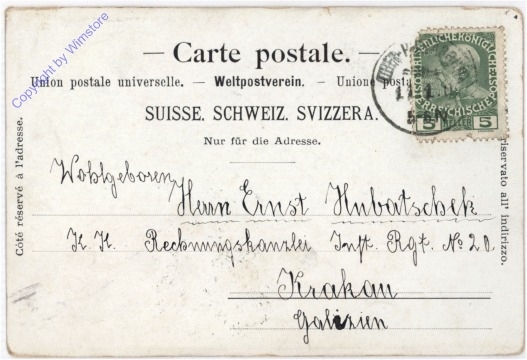 Copyright by Wimstore
— Carte postale. —
Union postale universelle. — Weltpostverein. — Union posta
SUISSE. SCHWEIZ. SVIZZERA.
Nur für die Adresse.
Côté réservé à l'adresse.
riservato all' indirizzo.
5 5
Wohlgeboren
Herrn Ernst Hubatschek
K. K. Rechnungskanzlei Inft. Rgt. No 20.
Krakau
Galizien